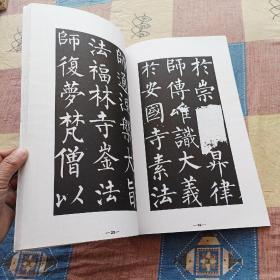 於崇昇律
師傳唯識大義
於安國寺素法
師通涅槃大旨
法福林寺崟法
師復夢梵僧以